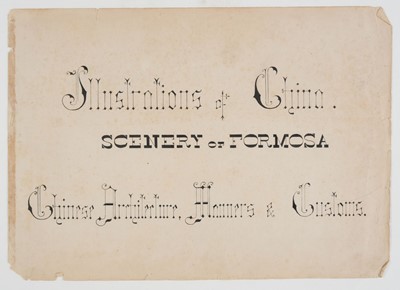 Illustrations of China.
SCENERY OF FORMOSA
Chinese Architecture, Manners & Customs.